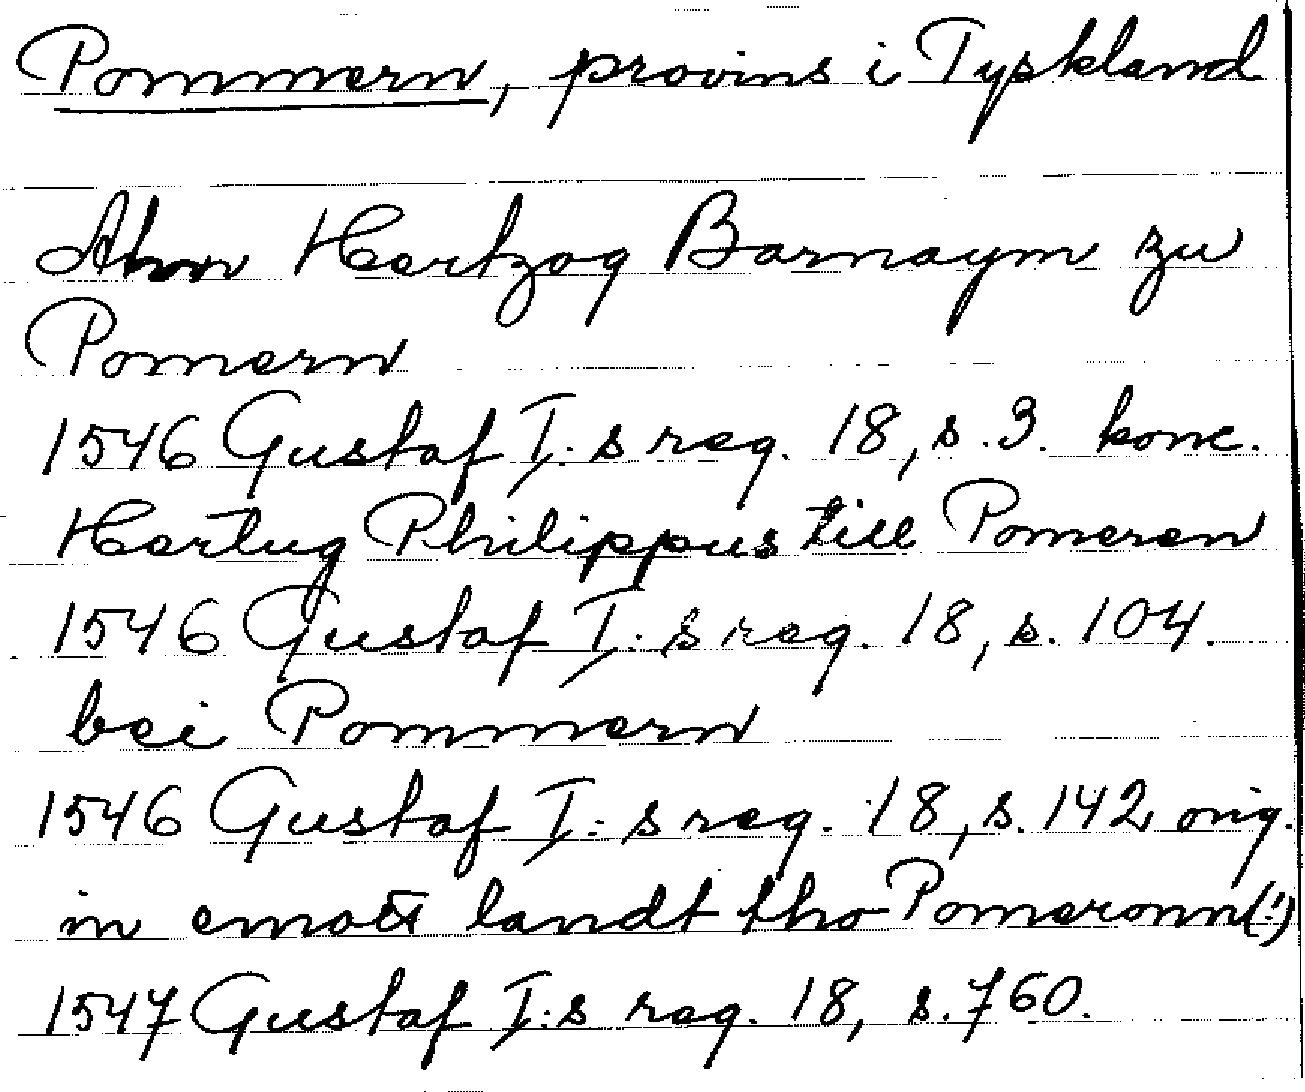 Pommern, provins i Tyskland
Ahnn Hertzog Barnaym zu
Pomern
1546 Gustaf I:s reg. 18, s. 3. konc.
Hertug Philippus till Pomeren
1546 Gustaf I:s reg. 18, s. 104.
bei Pommern
1546 Gustaf I:s reg. 18, s. 142 orig.
in emott landt tho Pomeronn(!)
1547 Gustaf I:s reg. 18, s. 760.